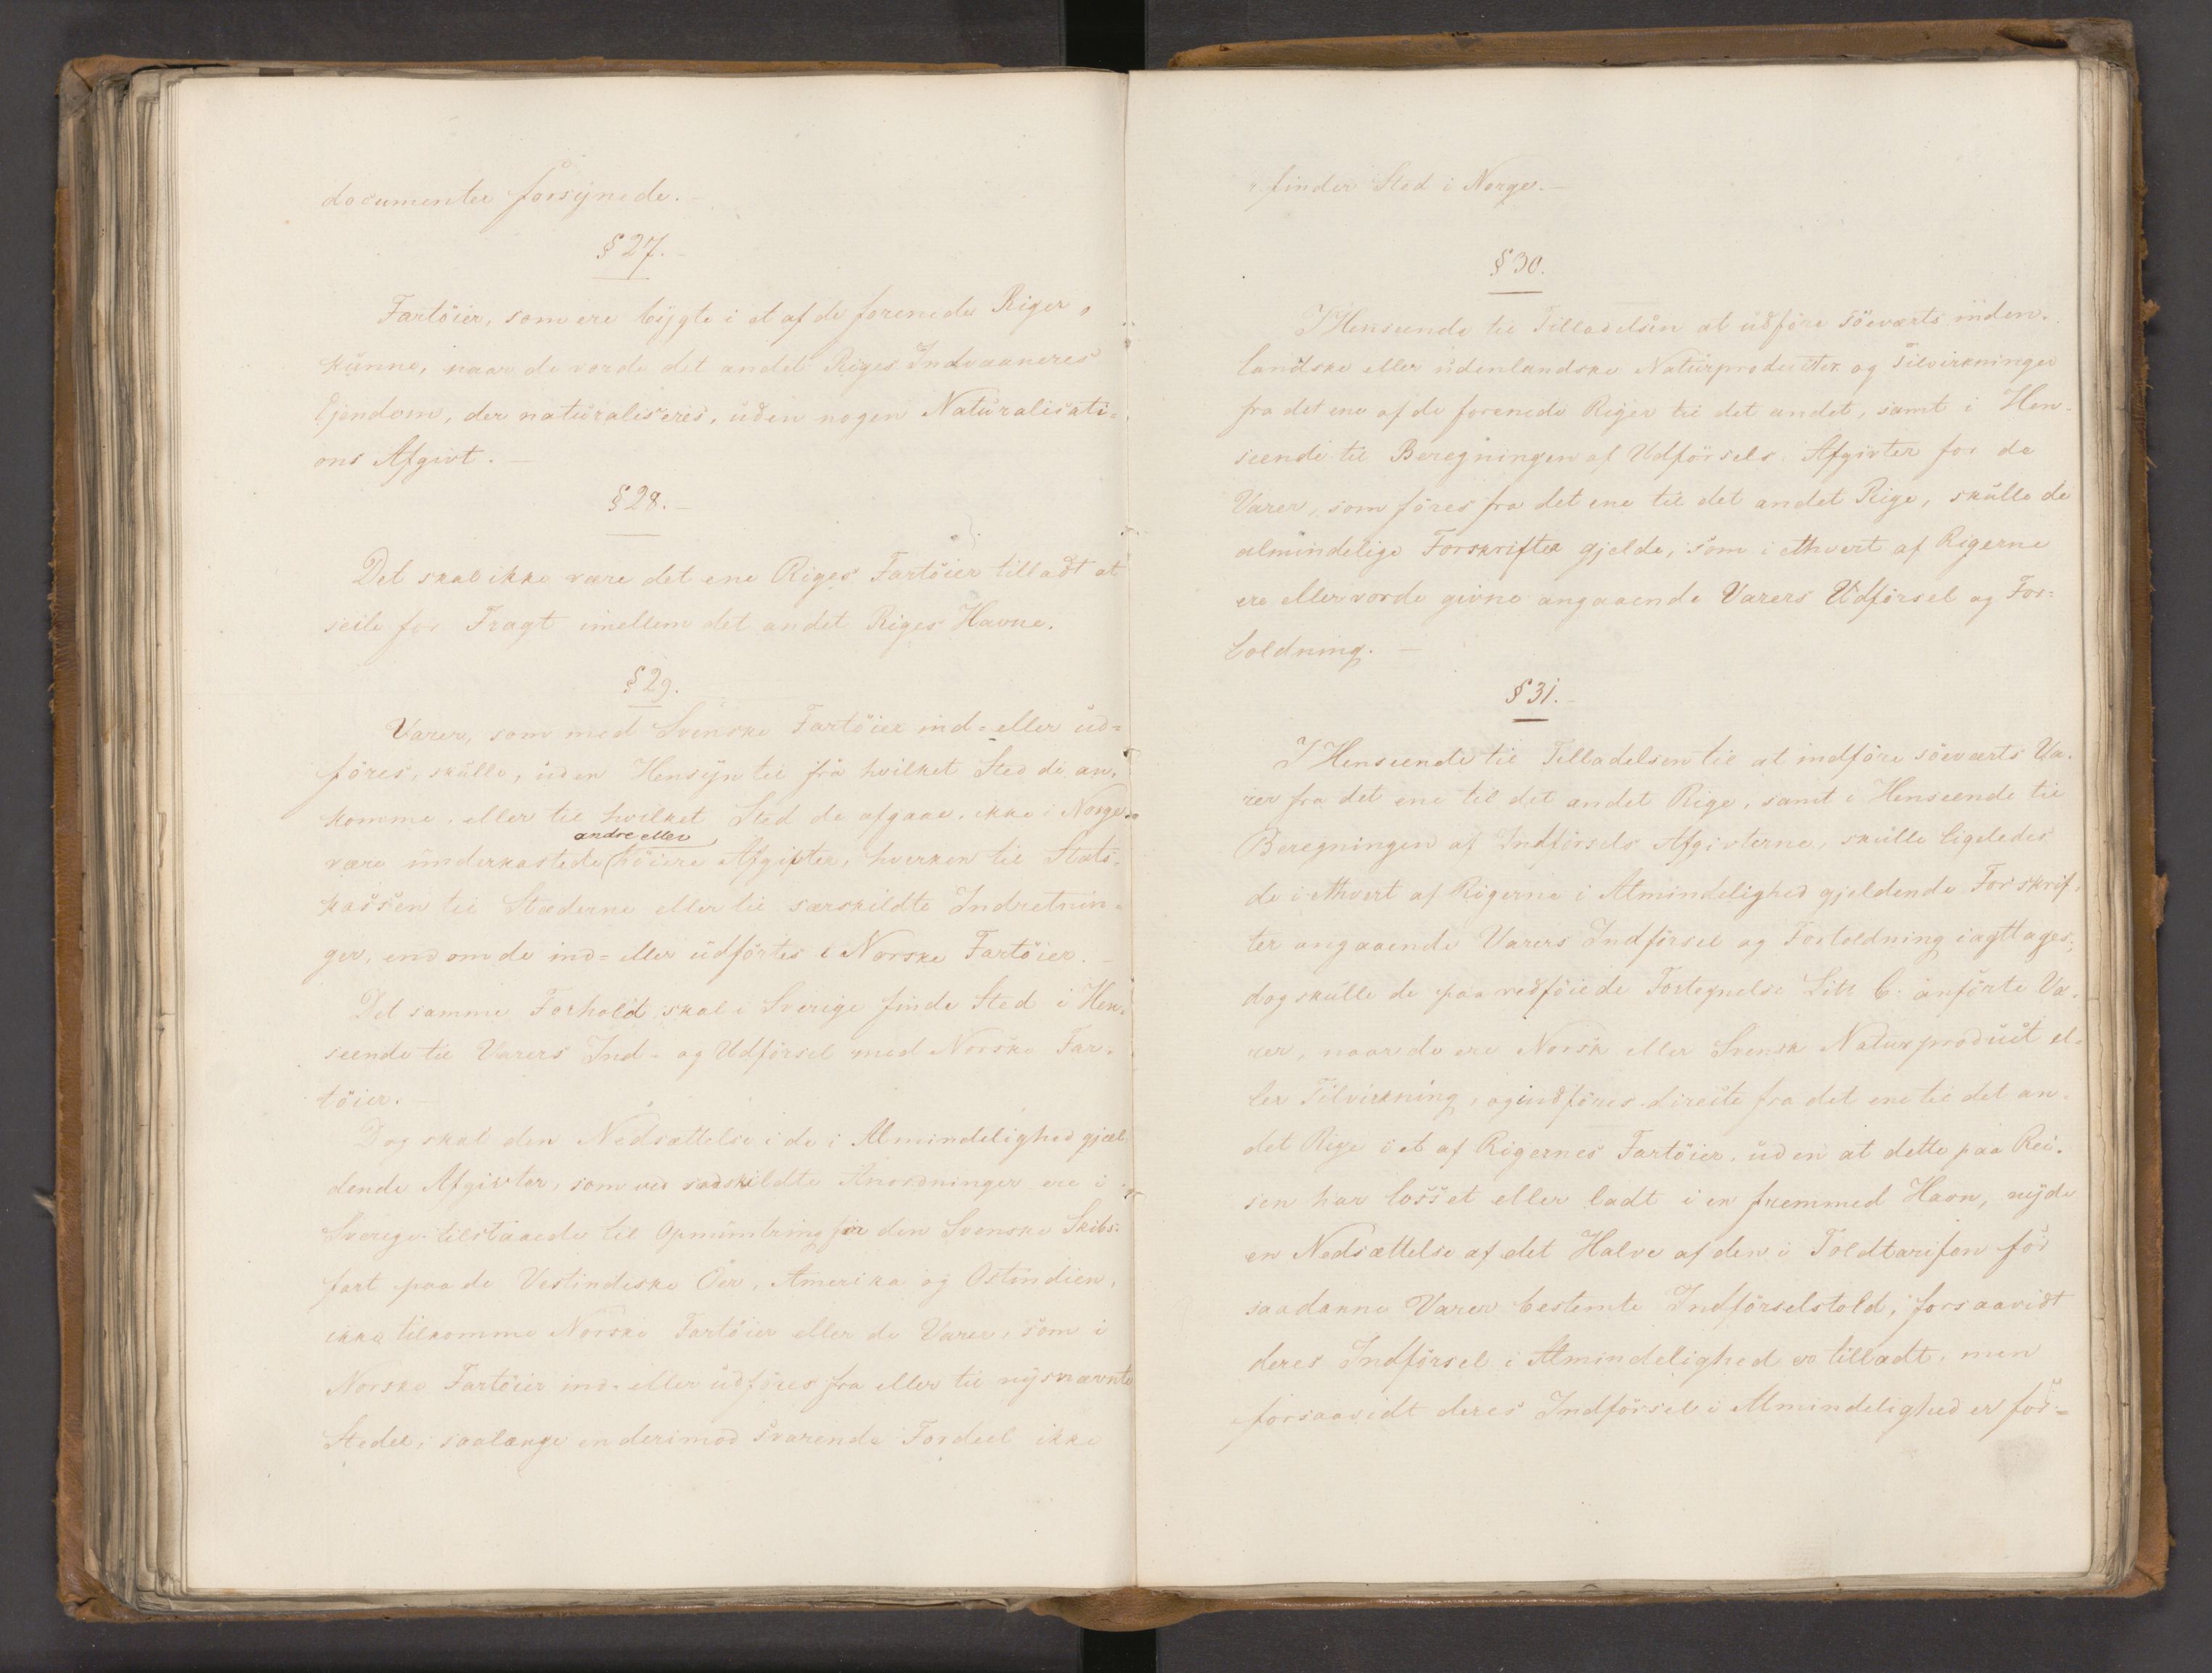 documenter forsynede.
§ 27.
Fartöier, som ere bÿgte i et af de forenede Riger
kunne, naar de vorde det andet Riges Indvaaneres
Ejendom, der naturaliseres, uden nogen Naturalisati=
ons Afgivt.
§ 28.
Det skal ikke være det ene Riges Fartöier tilladt at
seile for Fragt imellem det andet Riges Havne.
§ 29.
Varer, som med Svenske Fartöier ind= eller ud=
föres, skulle, uden Hensÿn til fra hvilket Sted de an=
komme, eller til hvilket Sted de afgaae, ikke i Norge
andre eller
være underkastede höiere Afgifter, hverken til Stats=
kassen til Stæderne eller til særskildte Indretnin=
ger, end om de ind= eller udförtes i Norske Fartöier.
Det samme Forhold skal i Sverige finde Sted i Hen=
seende til Varers Ind= og Udförsel med Norske Far=
töier.
Dog skal den Nedsættelse i de i Almindelighed gjæl=
dende Afgivter, som ved sædskildte Anordninger ere i
Sverige tilstaaede til Opmuntring for den Svenske Skibs=
fart paa de Vestindiske Öer, Amerika og Ostindien,
ikke tilkomme Norske Fartöier eller de Varer, som i
Norske Fartöier ind= eller udföres fra eller til nÿsnævnte
Steder, saalænge en derimod svarende Fordeel ikke
finder Sted i Norge.
§ 30.
I Henseende til Tilladelsen at udföre söeværts inden=
landske eller udenlandske Naturproducter og Tilvirkninger
fra det ene af de forenede Riger til det andet, samt i Hen=
seende til Beregningen af Udförsels Afgivter for de
Varer, som föres fra det ene til det andet Rige, skulle de
almindelige Forskrifter gjelde, som i ethvert af Rigerne
ere eller vorde givne angaaende Varers Udförsel og For=
toldning.
§ 31.
I Henseende til Tilladelsen til at indföre söeværts Va=
rer fra det ene til det andet Rige, samt i Henseende til
Beregningen af Indförsels Afgivterne, skulle ligeledes
de i ethvert af Rigerne i Almindelighed gjeldende Forskrif=
ter angaaende Varers Indförsel og Fortoldning iagttages;
dog skulle de paa vedföiede Fortegnelse Litr C. anförte Va=
rer, naar de ere Norsk eller Svensk Naturproduct el=
ler Tilvirkning, og indföres directe fra det ene til det an=
det Rige i et af Rigernes Fartöier, uden at dette paa Rei=
sen har losset eller ladt i en fremmed Havn, nÿde
en Nedsættelse af det Halve af den i Toldtarifen for
saadanne Varer bestemte Indförselstold, forsaavidt
deres Indförsel i Almindelighed er tilladt, men
forsaavidt deres Indförsel i Almindelighed er for=